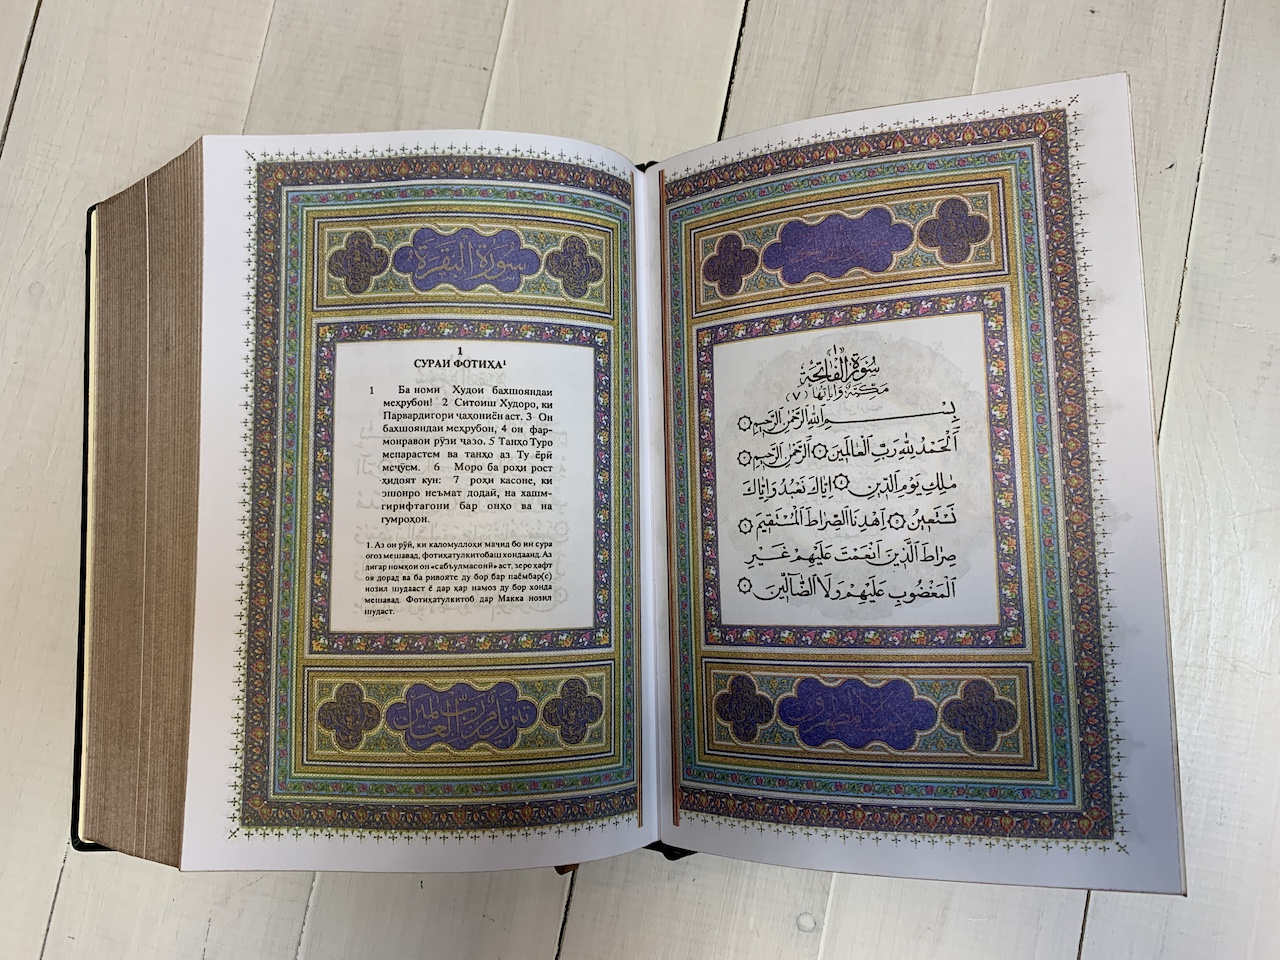 سورة البقرة
1
СУРАИ ФОТИҲА¹
1 Ба номи Худои бахшояндаи
меҳрубон! 2 Ситоиш Худоро, ки
Парвардигори ҷаҳониён аст. 3 Он
бахшояндаи меҳрубон, 4 он фар-
монравои рӯзи ҷазо. 5 Танҳо Туро
мепарастем ва танҳо аз Ту ёрӣ
меҷӯем. 6 Моро ба роҳи рост
ҳидоят кун: 7 роҳи касоне, ки
эшонро неъмат додаӣ, на хашм-
гирифтагони бар онҳо ва на
гумроҳон.
1. Аз он рӯй, ки каломуллоҳи маҷид бо ин сура
оғоз мешавад, фотиҳатулкитобаш хондаанд. Аз
дигар номҳои он «сабъулмасонӣ» аст, зеро ҳафт
оя дорад ва ба ривояте ду бор бар паёмбар(с)
нозил шудааст ё дар ҳар намоз ду бор хонда
мешавад. Фотиҳатулкитоб дар Макка нозил
шудаст.
تنزيل من رب العالمين
(١)
سورة الفاتحة
مكية وآياتها (٧)
بِسْمِ اللَّهِ الرَّحْمَٰنِ الرَّحِيمِ ١
الْحَمْدُ لِلَّهِ رَبِّ الْعَالَمِينَ ٢ الرَّحْمَٰنِ الرَّحِيمِ ٣
مَالِكِ يَوْمِ الدِّينِ ٤ إِيَّاكَ نَعْبُدُ وَإِيَّاكَ
نَسْتَعِينُ ٥ اهْدِنَا الصِّرَاطَ الْمُسْتَقِيمَ ٦
صِرَاطَ الَّذِينَ أَنْعَمْتَ عَلَيْهِمْ غَيْرِ
الْمَغْضُوبِ عَلَيْهِمْ وَلَا الضَّالِّينَ ٧